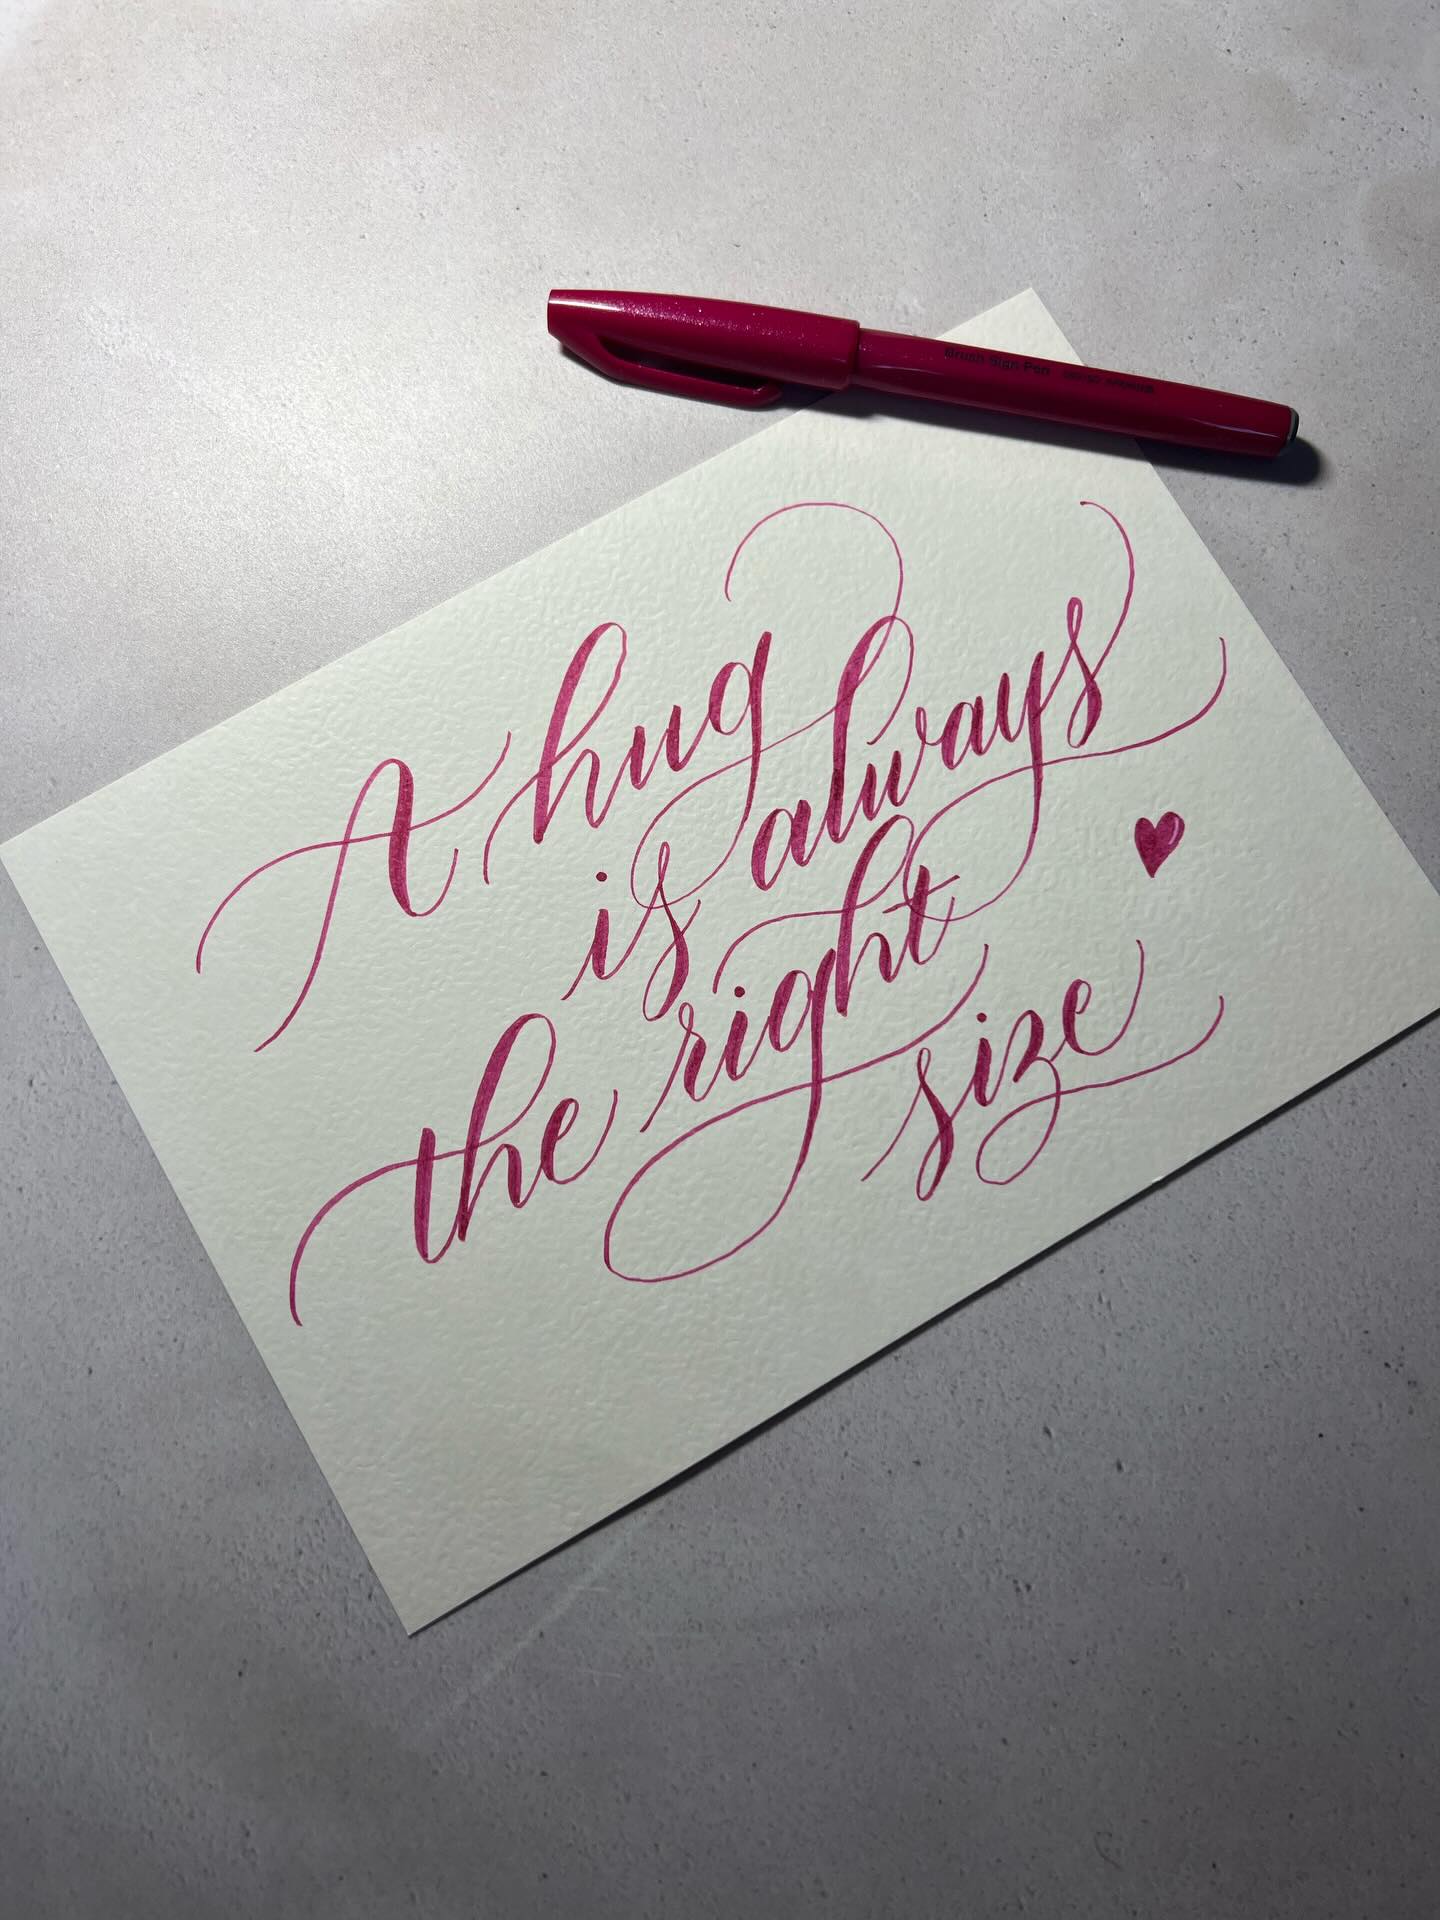 Brush Sign Pen
A hug
is always
the right
size